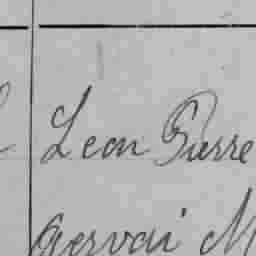 Leon Pierre
Gervai M